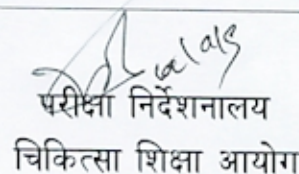 परीक्षा निर्देशनालय
चिकित्सा शिक्षा आयोग